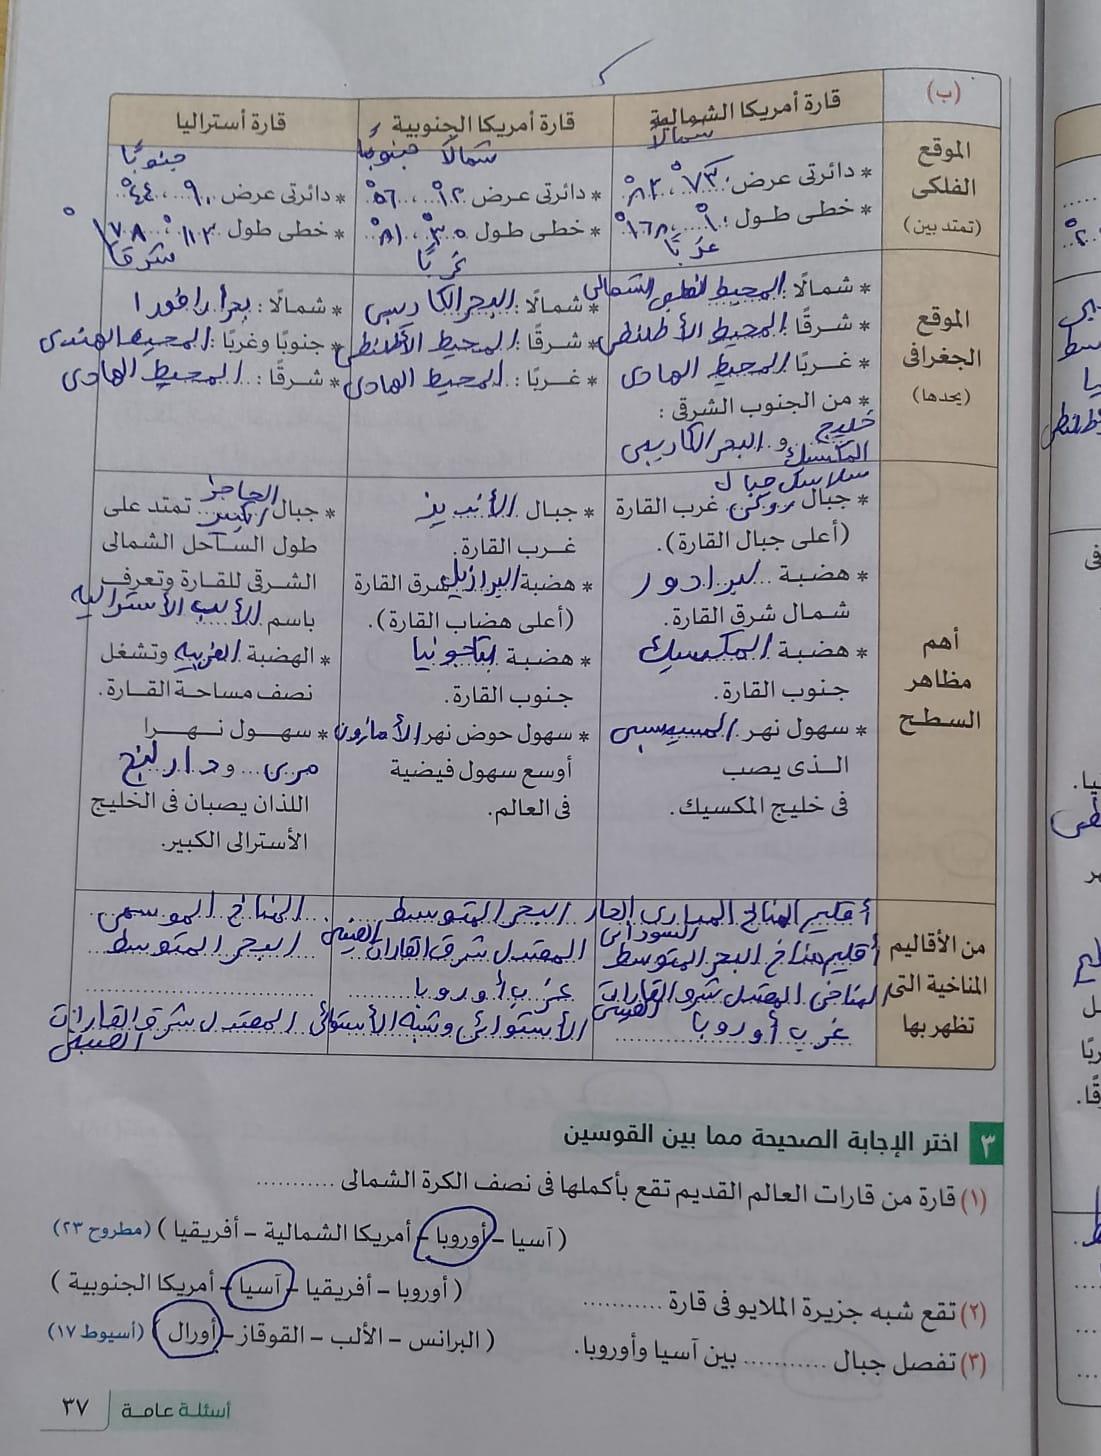 (ب)
قارة أمريكا الشمالية
قارة أمريكا الجنوبية
قارة أستراليا
الموقع
الفلكى
(تمتد بين)
شمالاً
* دائرتى عرض ٧٣°، ٨٣°
* خطى طول
١٦٨°
غربًا
شمالاً جنوبًا
* دائرتى عرض ١٢°، ٥٦°
* خطى طول ٣٥°، ٨١°
غربًا
جنوبًا
* دائرتى عرض ٩°، ٤٤°
* خطى طول ١١٣°، ١٧٨°
شرقا
الموقع
الجغرافى
(يحدها)
* شمالًا: المحيط القطبى الشمالى
* شرقًا: المحيط الأطلنطى
* غربًا المحيط الهادى
* من الجنوب الشرقى:
خليج المكسيك و البحر الكاريبى
* شمالًا: البحر الكاريبى
* شرقًا: المحيط الأطلنطى
* غربًا: المحيط الهادى
* شمالًا: بحر ارافورا
* جنوبًا وغربًا: المحيط الهندى
* شرقًا: المحيط الهادى
أهم
مظاهر
السطح
سلاسل جبال
* جبال روكى غرب القارة
(أعلى جبال القارة).
* هضبة لبرادور
شمال شرق القارة.
* هضبة المكسيك
جنوب القارة.
* سهول نهر المسيسبى
الذى يصب
فى خليج المكسيك.
* جبال الأنديز
غرب القارة.
* هضبة البرازيل شرق القارة
(أعلى هضاب القارة).
* هضبة بتاجونيا
جنوب القارة.
* سهول حوض نهر الأمازون
أوسع سهول فيضية
فى العالم.
* جبال الحاجز الكبير تمتد على
طول الساحل الشمالى
الشرقى للقارة وتعرف
باسم الألب الأسترالية
* الهضبة الغربية وتشغل
نصف مساحة القارة.
* سهول نهرا
مرى و دارلنج
اللذان يصبان فى الخليج
الأسترالى الكبير.
من الأقاليم
المناخية التى
تظهر بها
أقليم المناخ المدارى الحار
السودانى
أقليم مناخ البحر المتوسط
المناخ المعتدل شرق القارات
الصينى
غرب أوروبا
البحر المتوسط
المعتدل شرق القارات الصينى
غرب أوروبا
الأستوائى وشبه الأستوائى
المناخ الموسمى
البحر المتوسط
المعتدل شرق القارات
الصينى
٣ اختر الإجابة الصحيحة مما بين القوسين
(١) قارة من قارات العالم القديم تقع بأكملها فى نصف الكرة الشمالى ...........
( آسيا – أوروبا – أمريكا الشمالية – أفريقيا ) (مطروح ٢٣)
(٢) تقع شبه جزيرة الملايو فى قارة ...........
( أوروبا – أفريقيا – آسيا – أمريكا الجنوبية )
(٣) تفصل جبال ........... بين آسيا وأوروبا.
( البرانس – الألب – القوقاز – أورال ) (أسيوط ١٧)
أسئلة عامة
٣٧